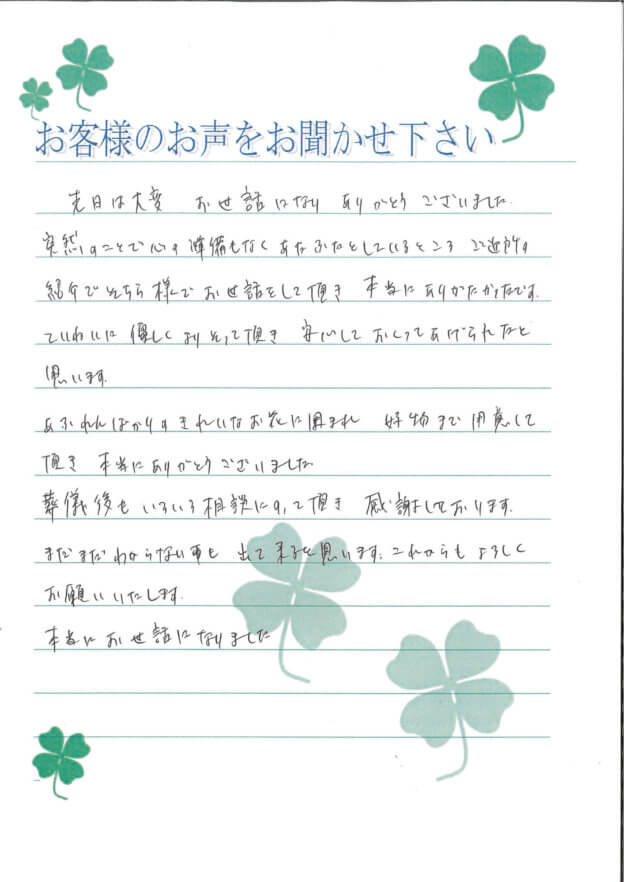 お客様のお声をお聞かせ下さい
先日は大変 お世話になり ありがとう ございました
突然のことで心の準備もなく あたふたとしているところ ご近所の
紹介でそちら様で お世話をして頂き 本当に ありがたかったです。
ていねいに 優しく より そって頂き 安心して おくってあげられたと
思います。
あふれんばかりの きれいな お花に囲まれ 好物まで 用意して
頂き 本当にありがとうございました
葬儀後も いろいろ 相談にのって頂き 感謝しております。
まだまだ わからない事も 出て来ると思います。これからも よろしく
お願いいたします。
本当に お世話になりました